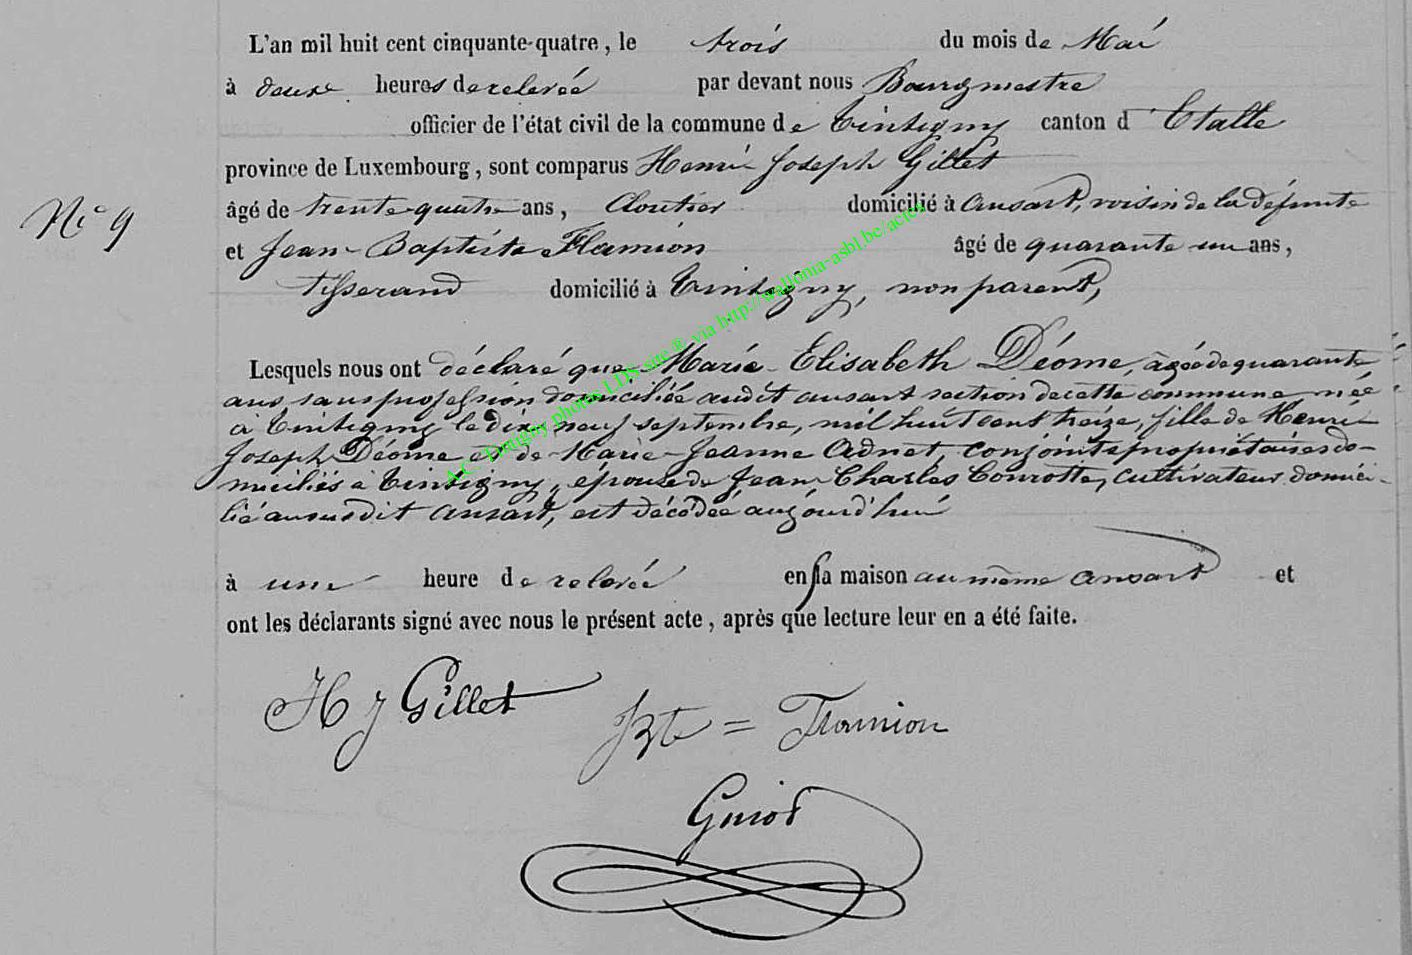 L'an mil huit cent cinquante-quatre, le trois du mois de Mai
à deux heures de relevée par devant nous Bourgmestre
officier de l'état civil de la commune de Tintigny canton d'Etalle
province de Luxembourg, sont comparus Henri Joseph Gillet
Nº 9
âgé de trente-quatre ans, Cloutier domicilié à Ansart, voisin de la défunte
et Jean-Baptiste Flamion âgé de quarante un ans,
tisserand domicilié à Tintigny, non parent,
Lesquels nous ont déclaré que Marie-Elisabeth Déome, agée de quarante
ans sans profession domiciliée audit ansart section de cette commune née
à Tintigny le dix neuf septembre, mil huit cent treize, fille de Henri
Joseph Déome et de Marie-Jeanne Adnet, conjoints propriétaires do-
miciliés à Tintigny, épouse de Jean Charles Courotte, cultivateur domici-
lié au susdit Ansart, est décédée aujourd'hui
à une heure de relevée en sa maison au même Ansart et
ont les déclarants signé avec nous le présent acte, après que lecture leur en a été faite.
H J Gillet
JBte = Flamion
Guiot
A.C. Tintigny photos LDS site ® via http://wallonia-asbl.be/actes